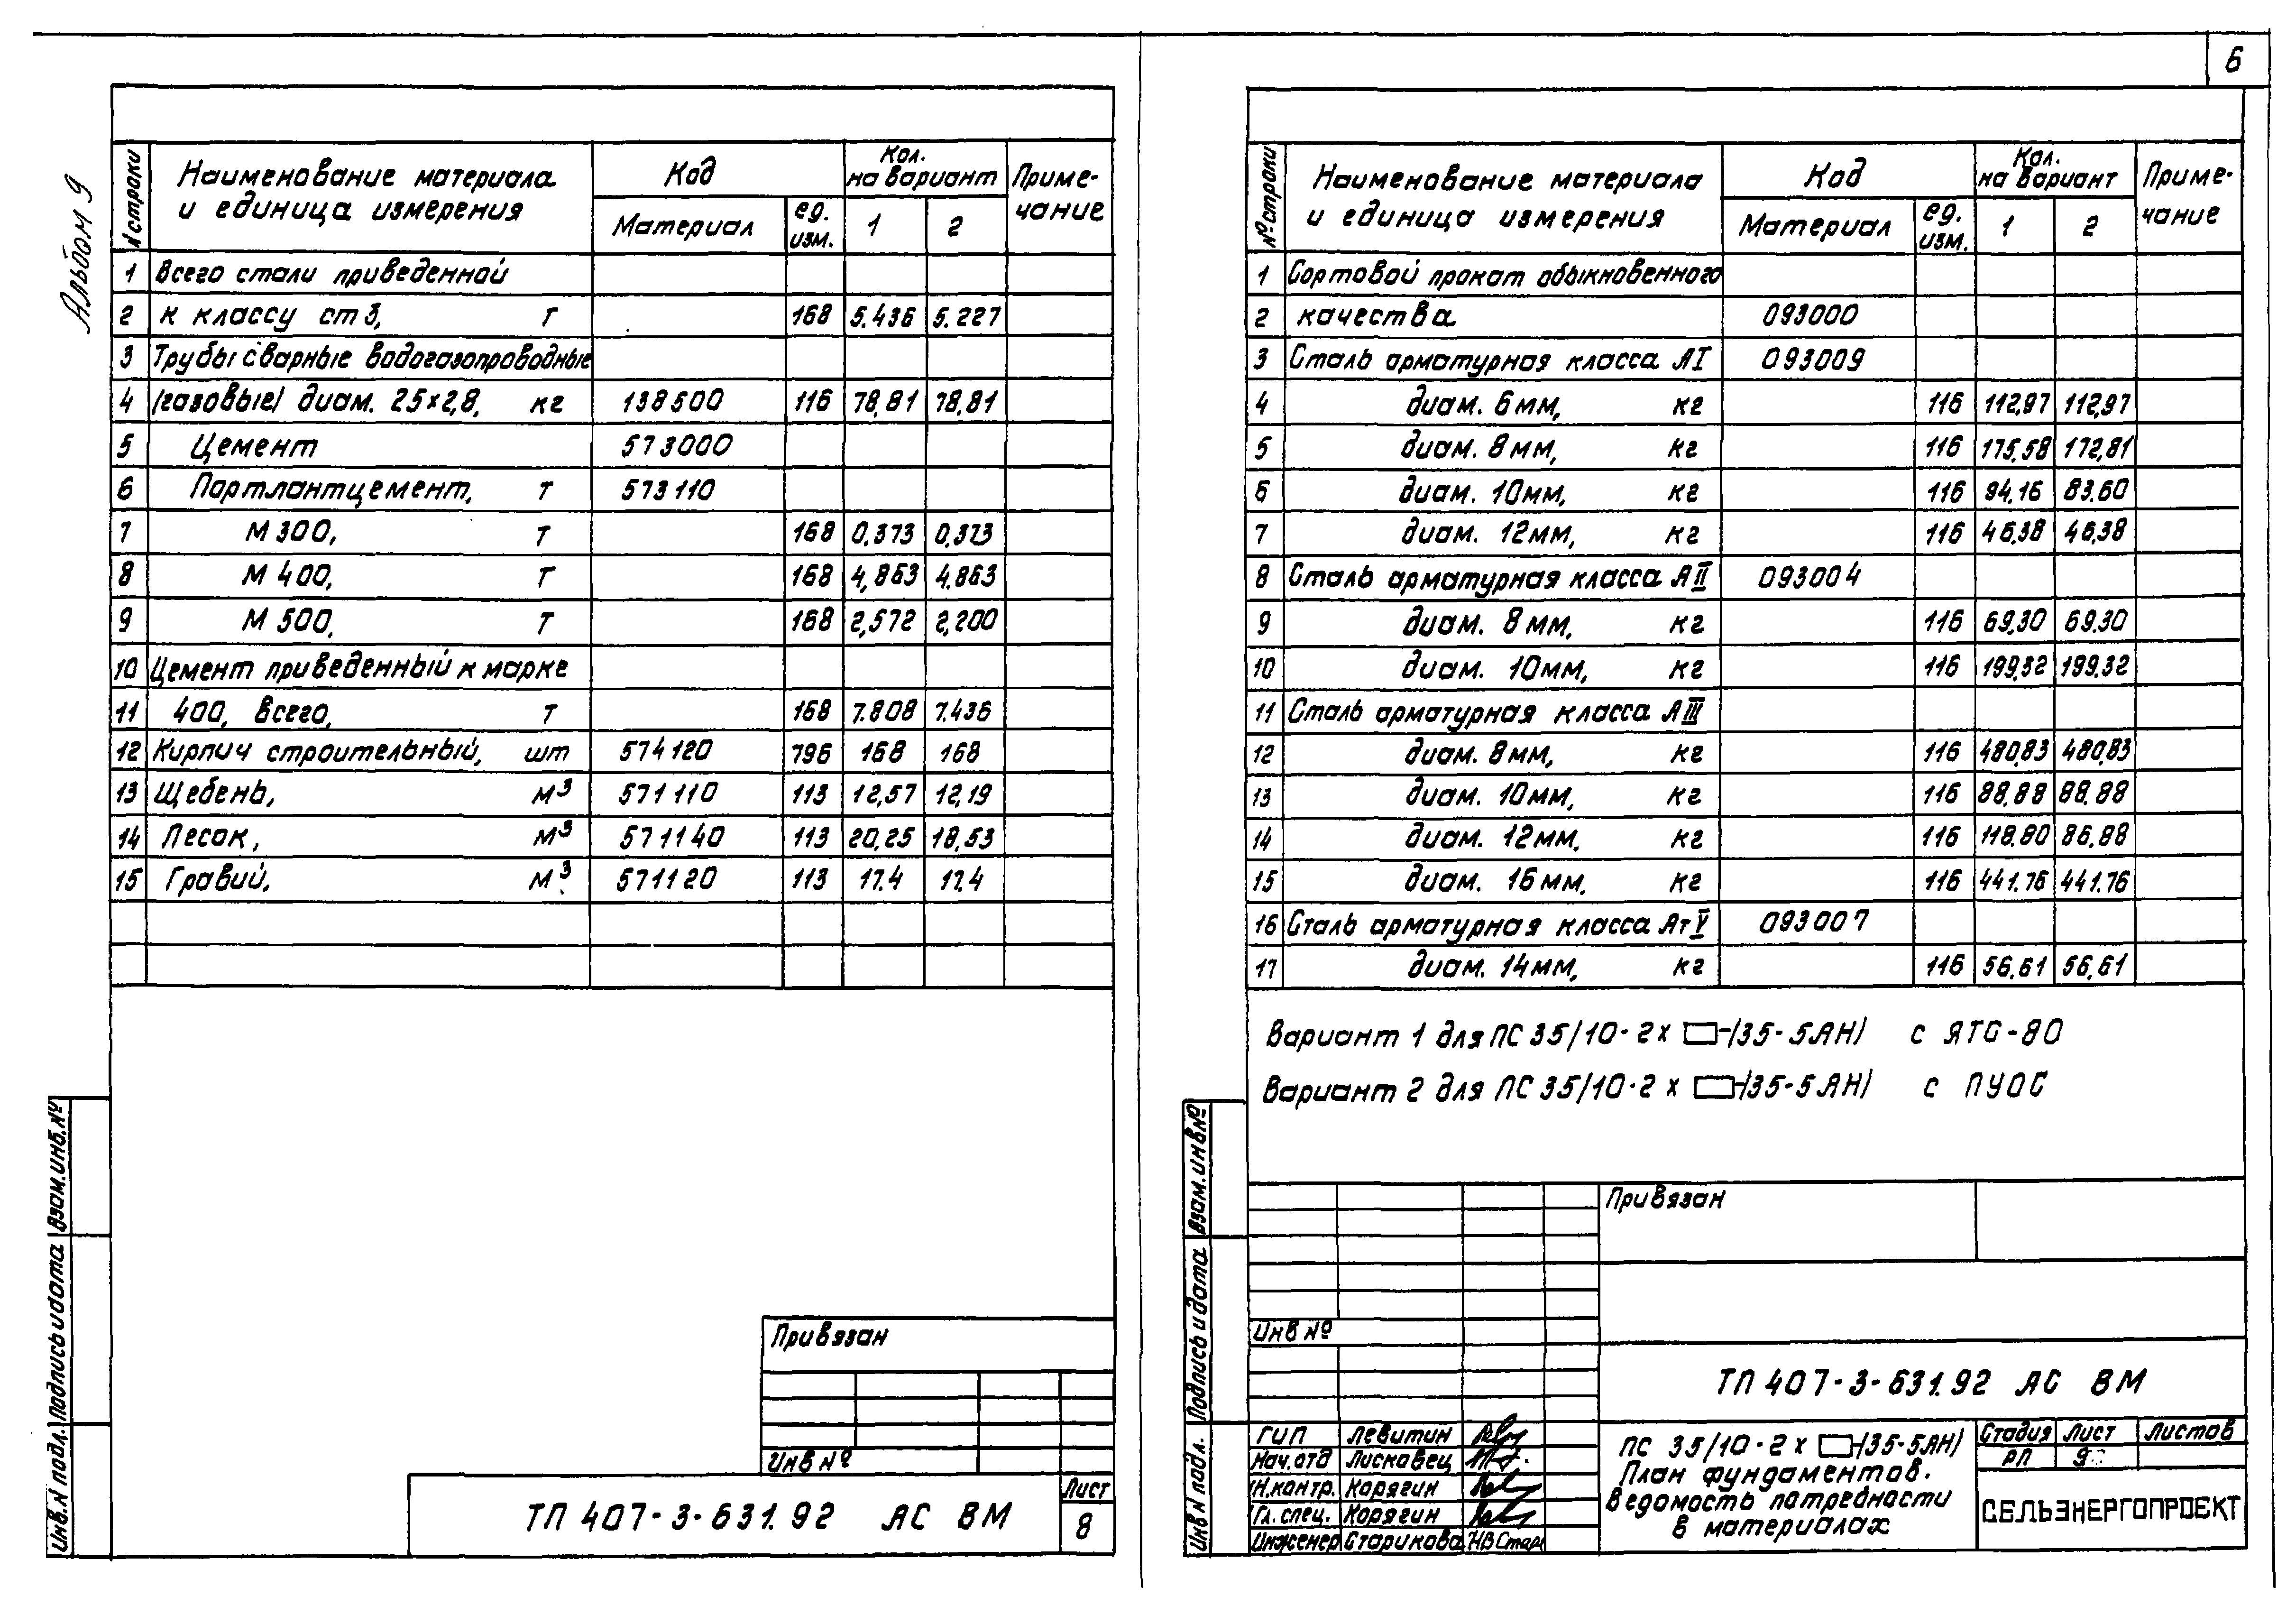 6
Альбом 9
N строки | Наименование материала и единица измерения | Код | Кол. на вариант | Приме-чание
Материал | ед. изм. | 1 | 2
1 Всего стали приведенной
2 к классу ст 3, т 168 5.436 5.227
3 Трубы сварные водогазопроводные
4 (газовые) диам. 25×2,8, кг 138500 116 78,81 78,81
5 Цемент 573000
6 Партлантцемент, т 573110
7 М 300, т 168 0,373 0,373
8 М 400, т 168 4,863 4.863
9 М 500, т 168 2,572 2,200
10 Цемент приведенный к марке
11 400, всего, т 168 7.808 7.436
12 Кирпич строительный, шт 574120 796 168 168
13 Щебень, м3 571110 113 12,57 12,19
14 Песок, м3 571140 113 20,25 18,53
15 Гравий, м3 571120 113 17.4 17.4
Привязан
Инв №
ТП 407-3-631.92 АС ВМ
Лист
8
Взам.инв.№
Подпись и дата
Инв.N подл.
№ строки | Наименование материала и единица измерения | Код | Кол. на вариант | Приме-чание
Материал | ед. изм. | 1 | 2
1 Сортовой прокат обыкновенного
2 качества 093000
3 Сталь арматурная класса АI 093009
4 диам. 6мм, кг 116 112,97 112,97
5 диам. 8мм, кг 116 175,58 172,81
6 диам. 10мм, кг 116 94.16 83.60
7 диам. 12мм, кг 116 46.38 46.38
8 Сталь арматурная класса АII 093004
9 диам. 8мм, кг 116 69,30 69.30
10 диам. 10мм, кг 116 199,32 199,32
11 Сталь арматурная класса АIII
12 диам. 8мм, кг 116 480,83 480,83
13 диам. 10мм, кг 116 88.88 88.88
14 диам. 12мм. кг 116 118.80 86,88
15 диам. 16мм. кг 116 441.76 441.76
16 Сталь арматурная класса АтV 093007
17 диам. 14мм, кг 116 56,61 56,61
Вариант 1 для ПС 35/10-2х □-(35-5АН) с ЯТС-80
Вариант 2 для ПС 35/10-2х □-(35-5АН) с ПУОС
Привязан
Инв №
ТП 407-3-631.92 АС ВМ
ГИП Левитин
Нач.отд Лисковец
Н.контр. Карягин
Гл.спец. Корягин
Инженер Старикова НВ Стар
ПС 35/10-2х □-(35-5АН)
План фундаментов.
Ведомость потребности
в материалах
Стадия Лист Листов
РП 9
СЕЛЬЭНЕРГОПРОЕКТ
Взам.инв№
Подпись и дата
Инв N подл.